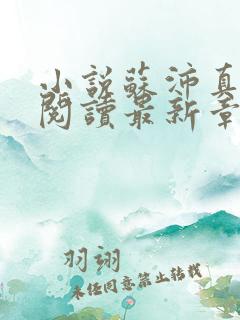 小說蘇沛真
閱讀最新章
羽翊
未经同意禁止转载